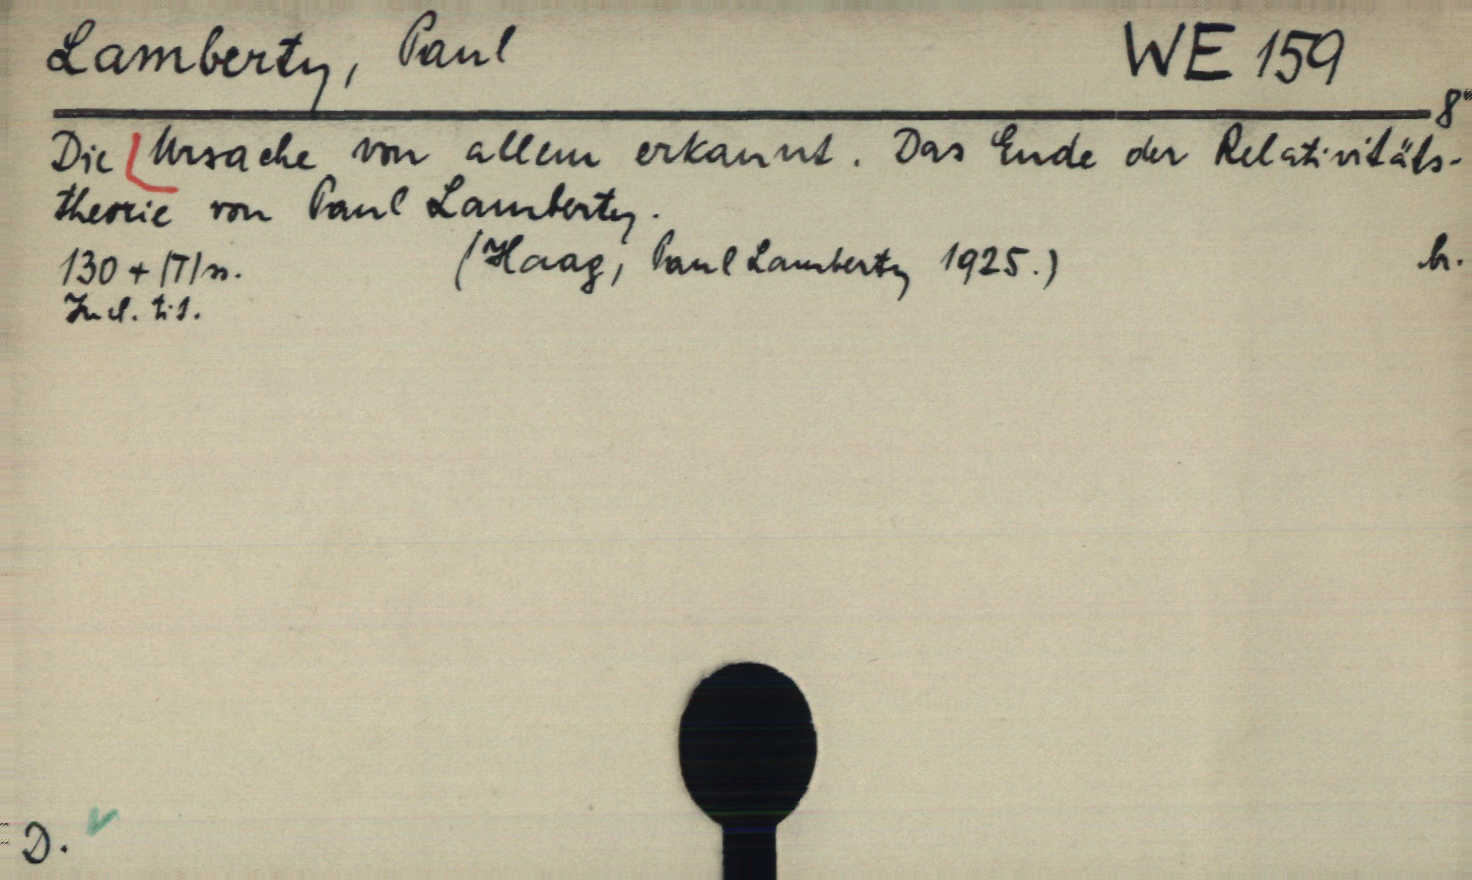 Lamberty, Paul WE 159
8°
Die Ursache von allem erkannt. Das Ende der Relativitäts-
theorie von Paul Lamberty.
130 + |T| s. (Haag, Paul Lamberty 1925.) h.
Incl. tit.
D.